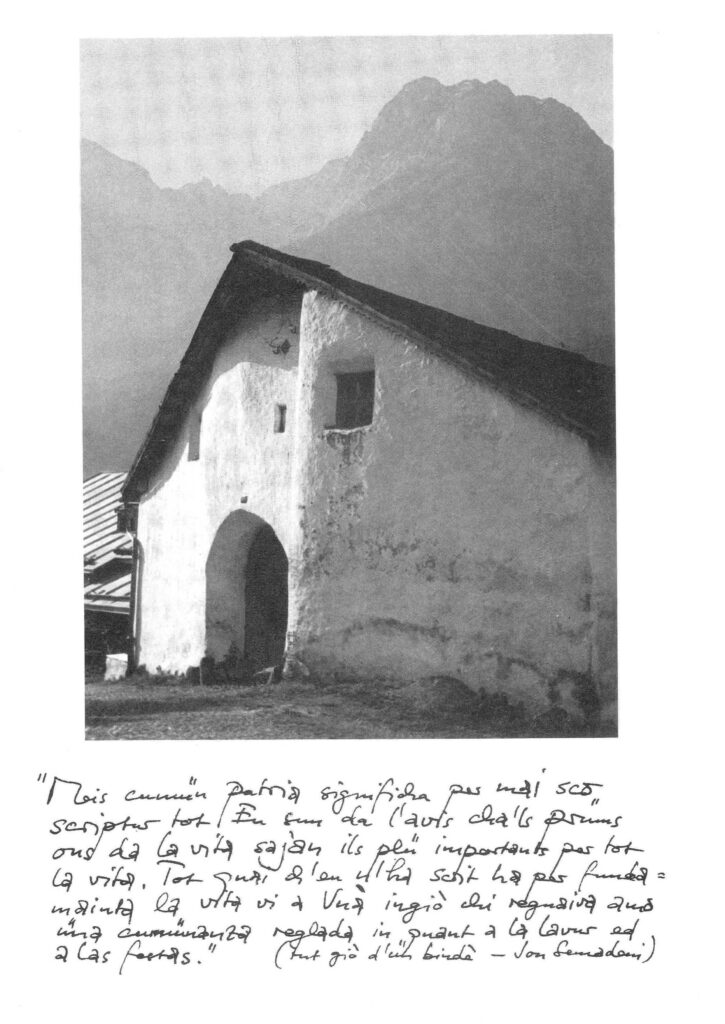 "Meis cumün patria significha per mai sco
scriptur tot. Eu sun da l'avis cha'ls prüms
ons da la vita sajan ils plü importants per tot
la vita. Tot quai ch'eu n'ha scrit ha per funda=
mainta la vita vi a Vnà ingiò chi regnaiva amo
üna cumünanza reglada in quant a la lavur ed
a las festas." (tut giò d'ün bindè – Jon Semadeni)